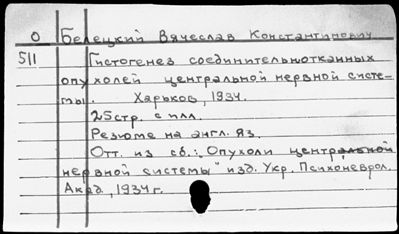 О Белецкий Вячеслав Константинович
511 Гистогенез соединительнотканных
опухолей центральной нервной систе-
мы. Харьков, 1934.
25стр. с илл.
Резюме на англ. яз.
Отт. из сб.: "Опухоли центральной
нервной системы" изд. Укр. Психоневрол.
Акад, 1934г.